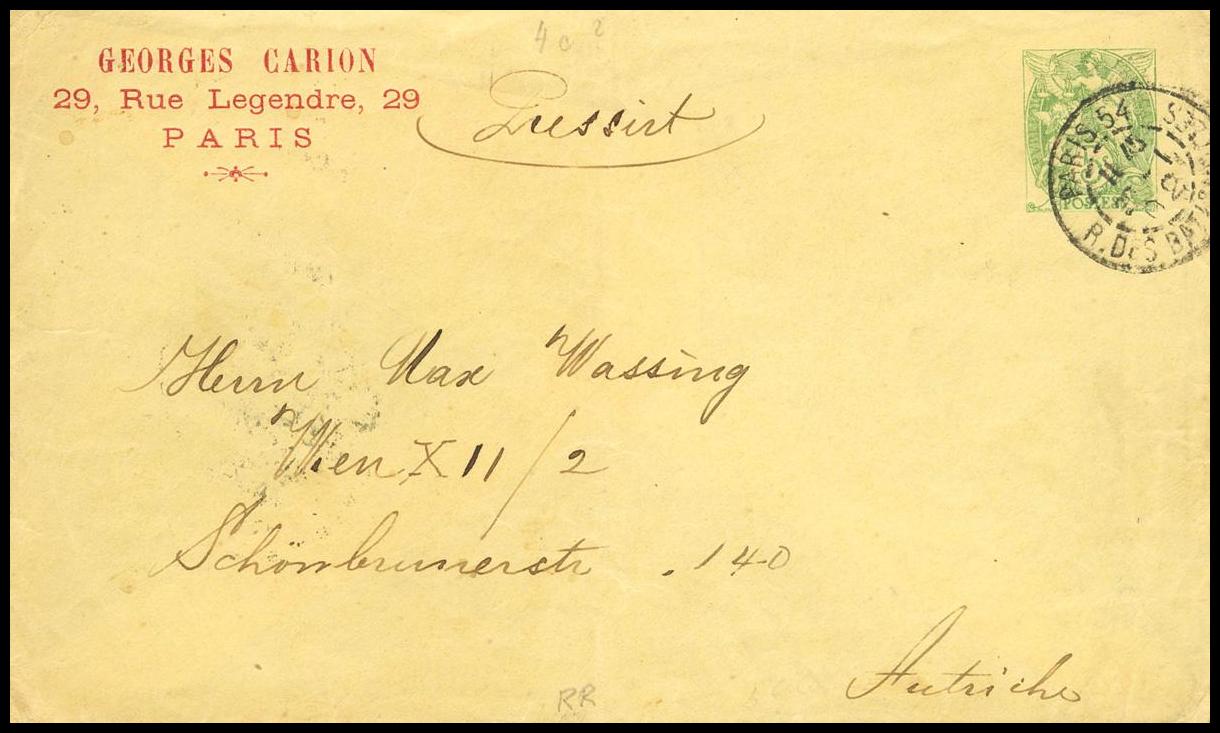 GEORGES CARION
29, Rue Legendre, 29
PARIS
4c
Pressirt
POSTES
PARIS 54
R. DES BAT
Herrn Max Wassing
Wien XII/2
Schönbrunerstr. 140
Autriche
RR